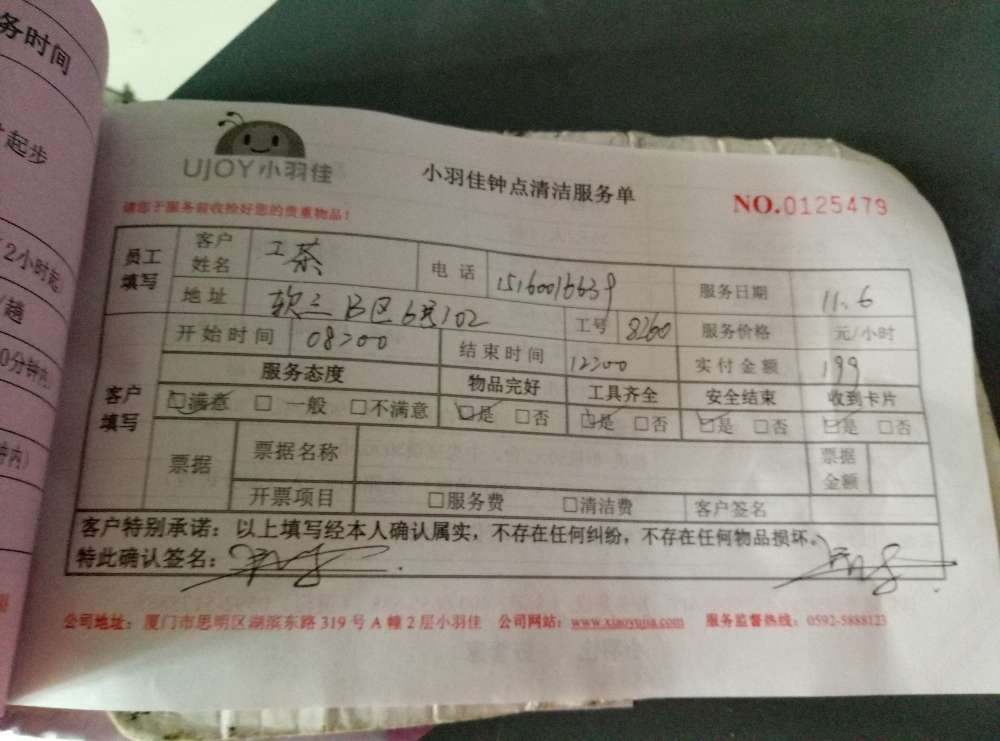 务时间
起步
2小时起
/趟
0分钟内
钟内）
UJOY小羽佳
小羽佳钟点清洁服务单
NO.0125479
请您于服务前收捡好您的贵重物品！
员工填写 客户姓名 工茶 电话 15160016639 服务日期 11.6
地址 软三B区6号102 工号 8260 服务价格 元/小时
客户填写 开始时间 08:00 结束时间 12:00 实付金额 199
服务态度 物品完好 工具齐全 安全结束 收到卡片
□满意 □一般 □不满意 □是 □否 □是 □否 □是 □否 □是 □否
票据 票据名称 票据金额
开票项目 □服务费 □清洁费 客户签名
客户特别承诺：以上填写经本人确认属实，不存在任何纠纷，不存在任何物品损坏。
特此确认签名：
公司地址：厦门市思明区湖滨东路319号A幢2层小羽佳 公司网站：www.xiaoyujia.com 服务监督热线：0592-5888123